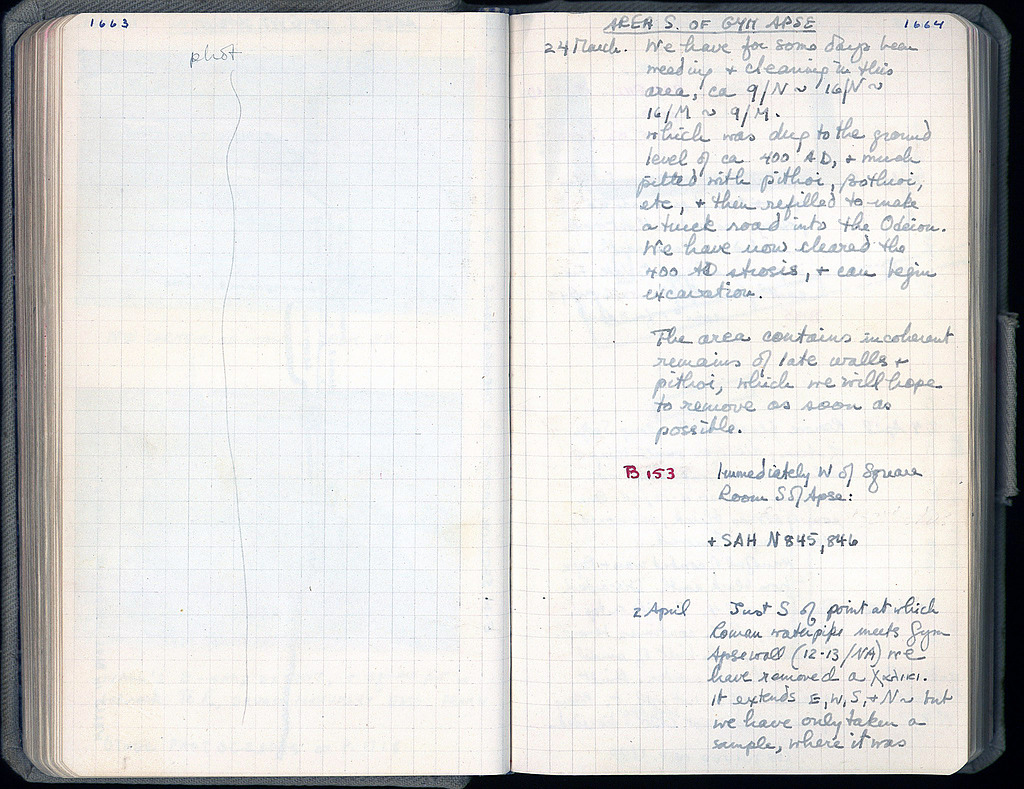 1663
phot
1664
AREA S. OF GYM APSE
24 March. We have for some days been
weeding + cleaning in this
area, ca 9/N ~ 16/N ~
16/M ~ 9/M.
which was dug to the ground
level of ca 400 AD, + much
pitted with pithoi, bothroi,
etc, + then refilled to make
a truck road into the Odeion.
We have now cleared the
400 AD strosis, + can begin
excavation.
The area contains incoherent
remains of late walls +
pithoi, which we will hope
to remove as soon as
possible.
B 153 Immediately W of Square
Room S of Apse:
+ SAH N 845, 846
2 April Just S of point at which
Roman waterpipe meets Gym
Apse wall (12-13/NA) we
have removed a
it extends E, W, S, + N ~ but
we have only taken a
sample, where it was